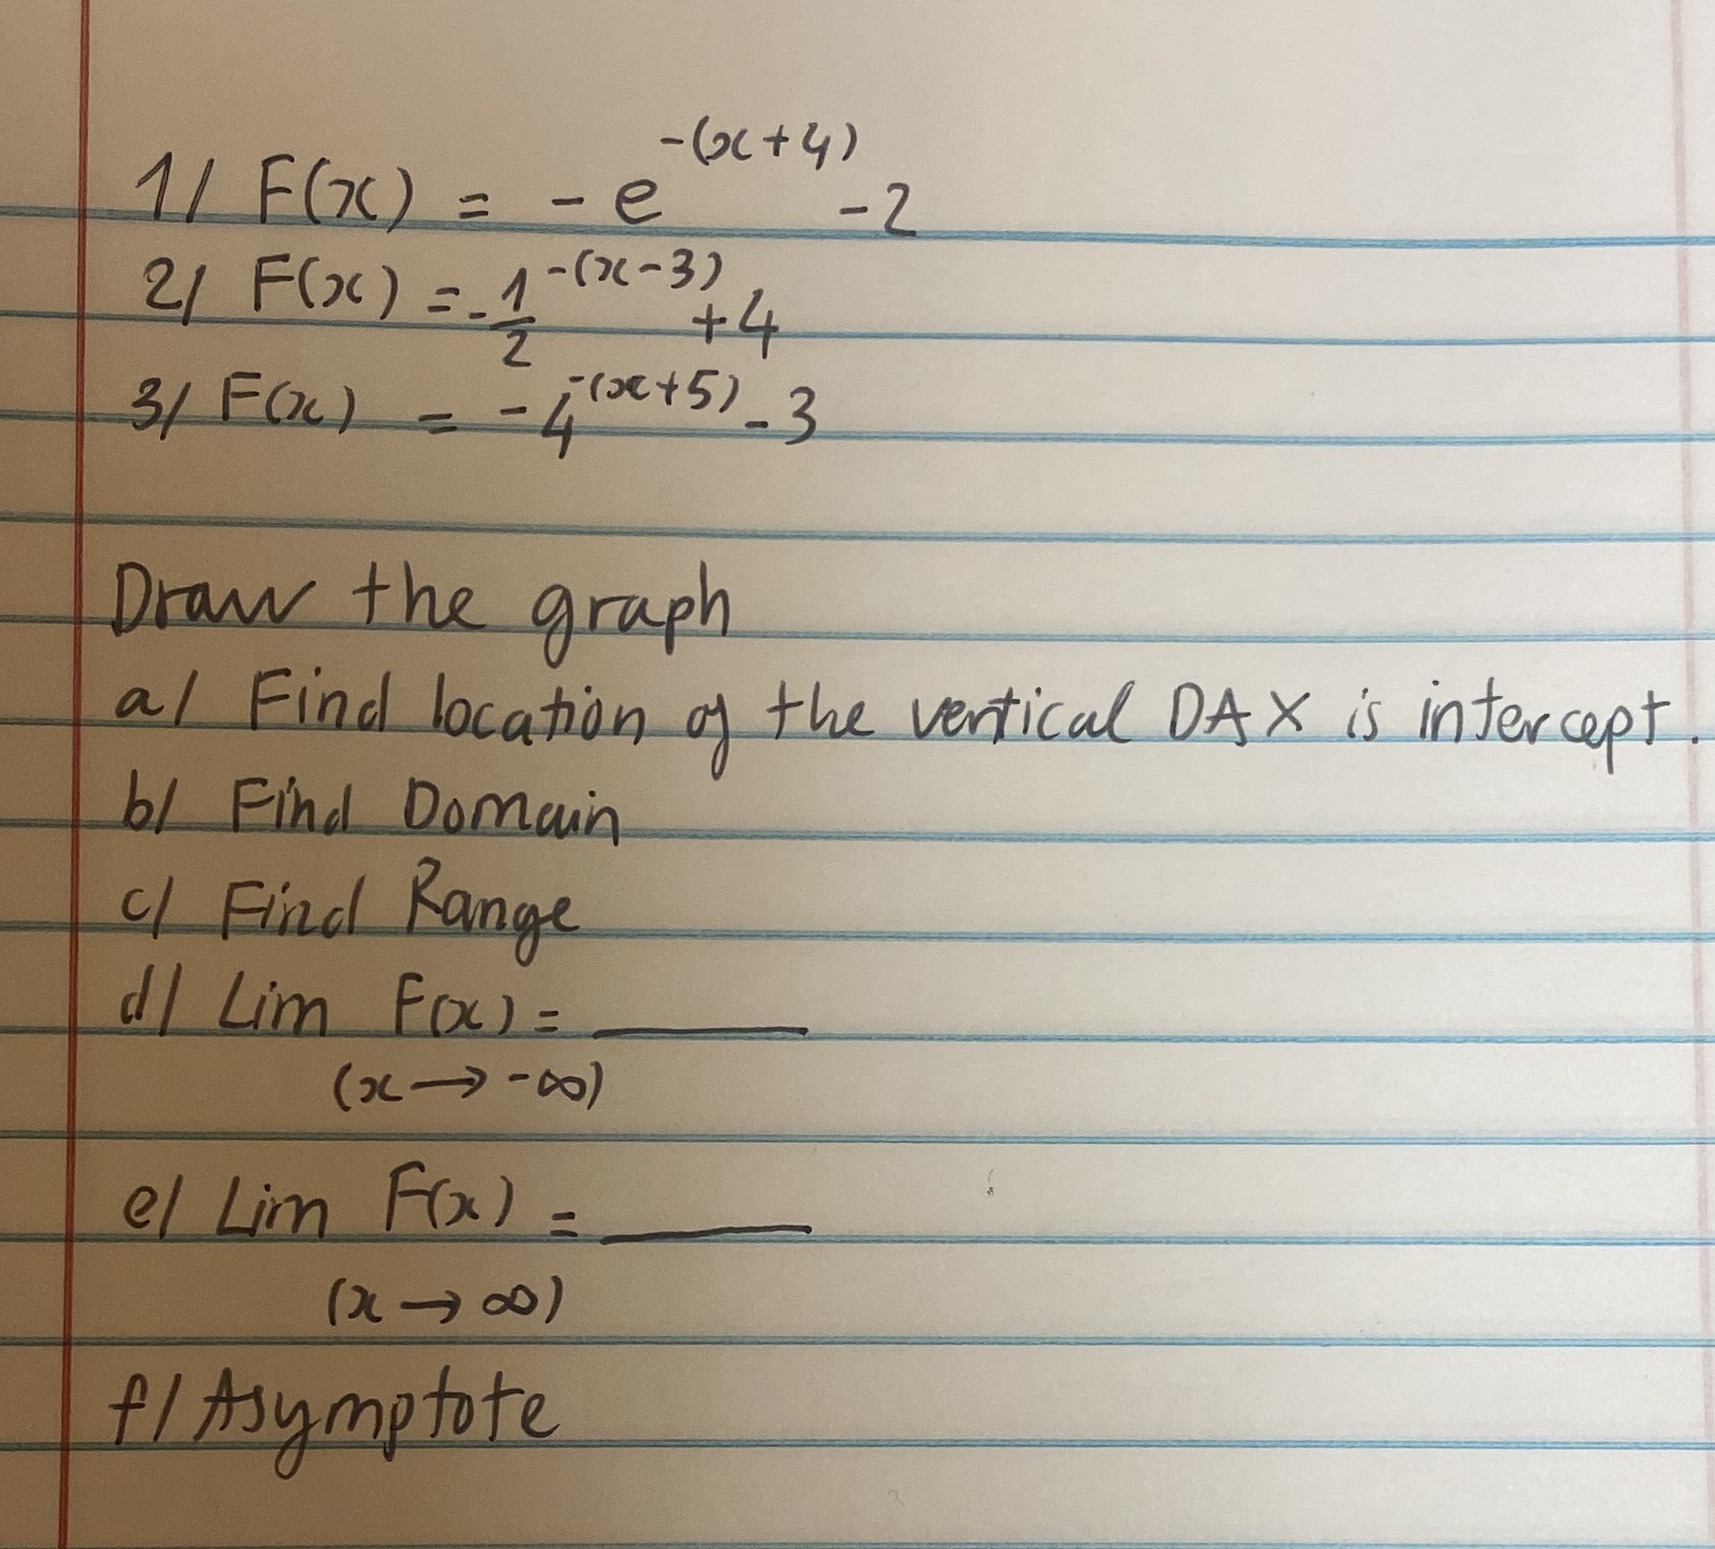 1/ F(x) = -e^{-(x+4)} -2
2/ F(x) = -\frac{1}{2}^{-(x-3)} +4
3/ F(x) = -4^{-(x+5)} -3
Draw the graph
a/ Find location of the vertical DAX is intercept.
b/ Find Domain
c/ Find Range
d/ Lim F(x) = ______
(x → -∞)
e/ Lim F(x) = ______
(x → ∞)
f/ Asymptote